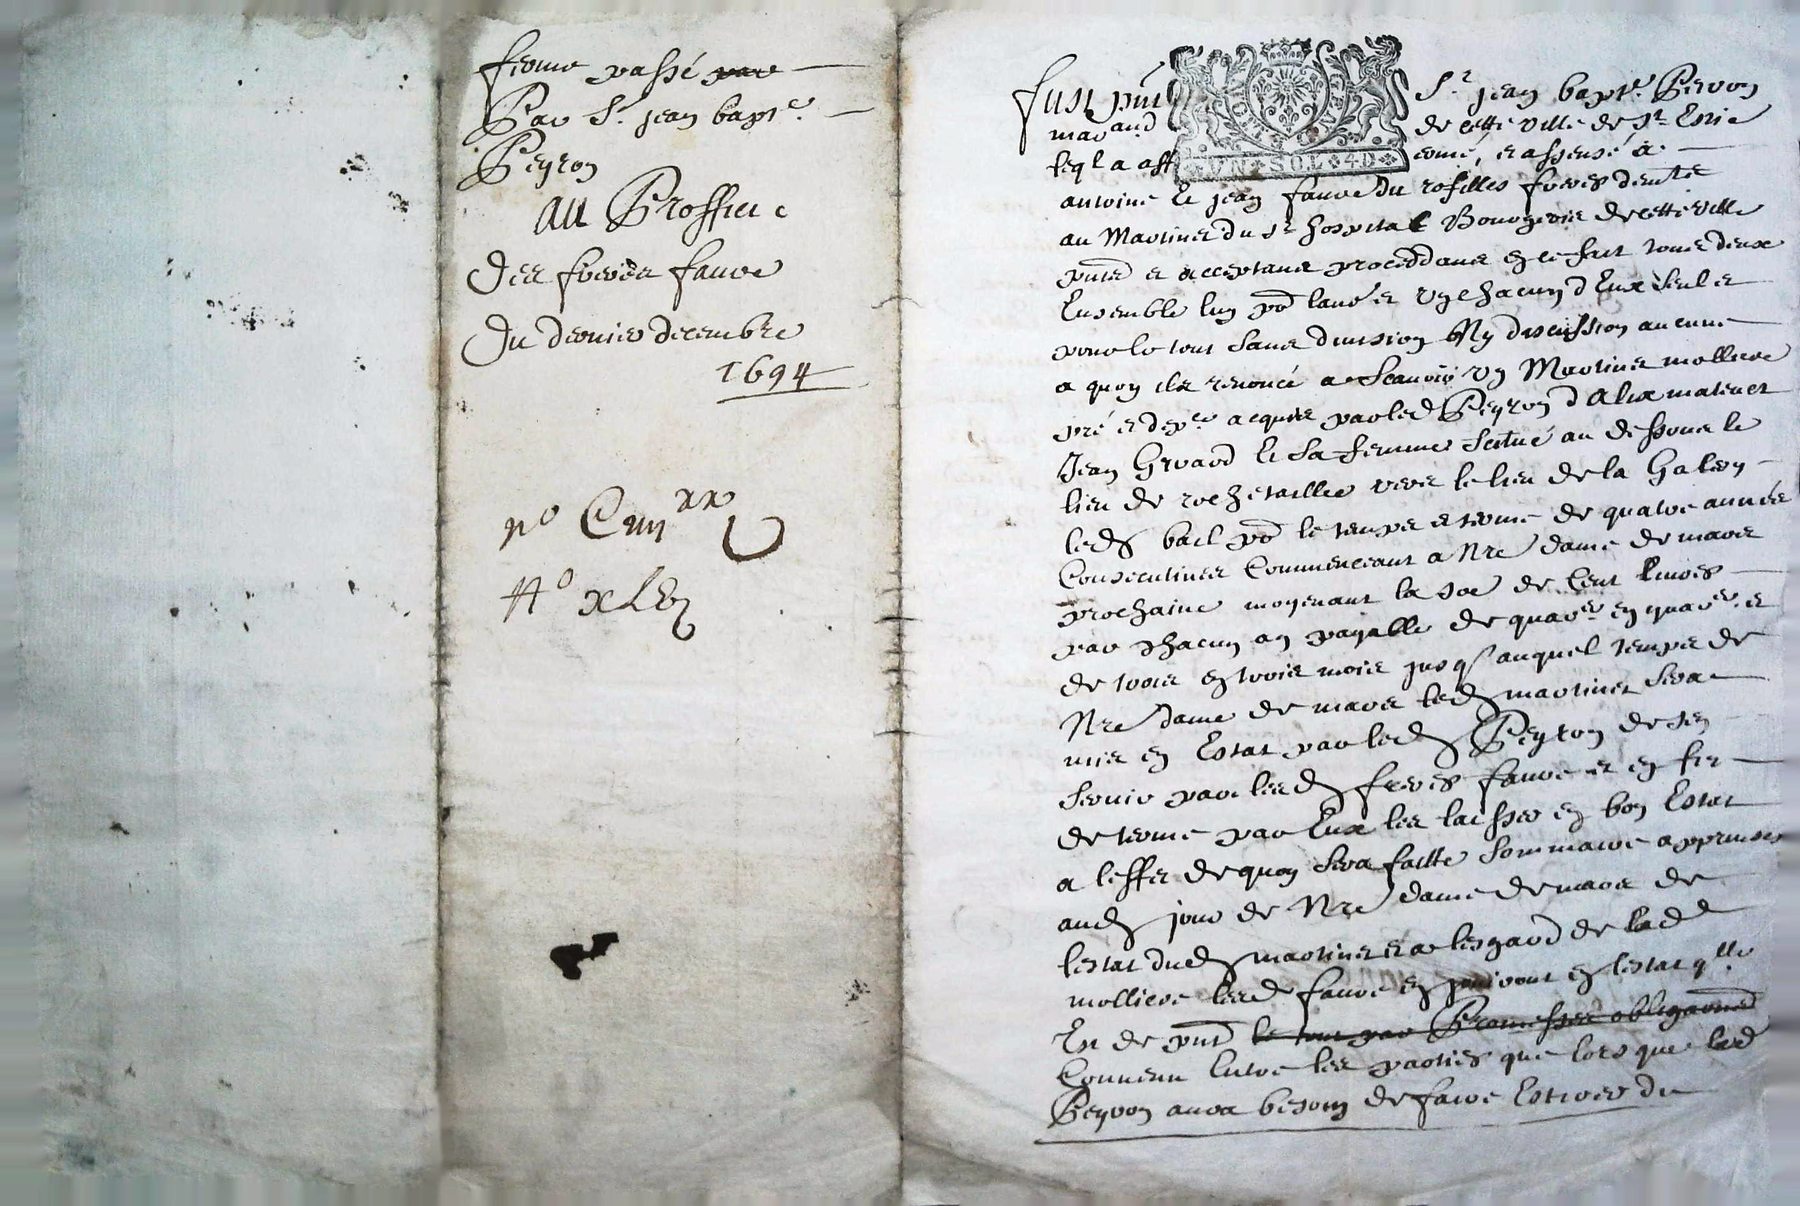 ferme passé par
Par Sr. jean bapte.
Peyron
au Proffict
des freres faure
Du dernier decembre
1694
no
No
fust pnt Sr. jean bapte. Peyron
marand de cette ville de St. Estie
leql a aff ermé, et assensé a
antoine et jean faure du rosilles freres demts
au Martinet du Sr hospital Bourgeois de cette ville
pnts et acceptans procedans en ce fait tous deux
Ensemble lun pr lautre un chacun d Eux seul et
pour le tout sans division Ny discussion aucune
a quoy ils renoncé a scauoir un Martinet molliere
pré et acquis par led Peyron d
Jean Girard et sa femme scitué au dessous le
lieu de rochetaillee vers le lieu de la
led bail pr le temps et terme de quatre années
Consecutiues Commenceant a Nre dame de mars
prochaine moyenant la soe de Cent liures
par chacun an payable de quar. en quar. et
de trois en trois mois jusq auquel temps de
Nre dame de mars led martinet sera
mis en Estat par led Peyron de sen
seruir par lesd freres faure et en fin
de terme par Eux les laisser en bon Estat
a leffet de quoy sera faitte sommaire apprinse
aud jour de Nre dame de mars de
lestat dud martinet et a lesgard de lad
molliere lesd faure en jouiront en lestat qlle
Est de pnt le tout par Promesses obligaons
Conuenu Entre les parties que lors que led
Peyron aura besoin de faire Estirer du
UN SOL 4D